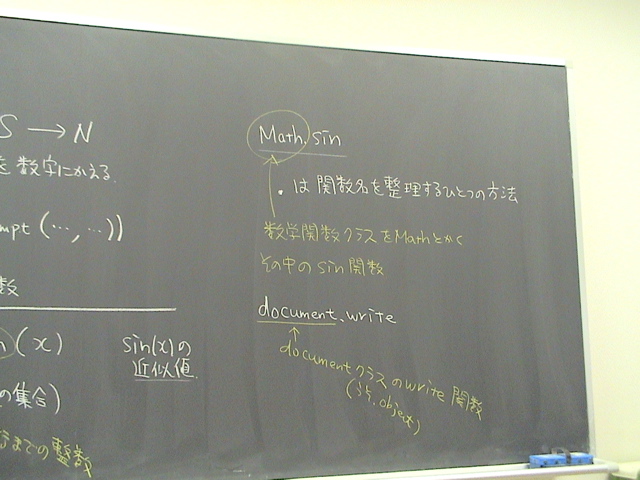 S → N
を数字にかえる.
mpt (…, …))
数
n(x)
sin(x)の
近似値
の集合)
までの整数
Math.sin
. は関数名を整理するひとつの方法
数学関数クラスをMathとかく
その中のsin関数
document.write
documentクラスのwrite関数
object)